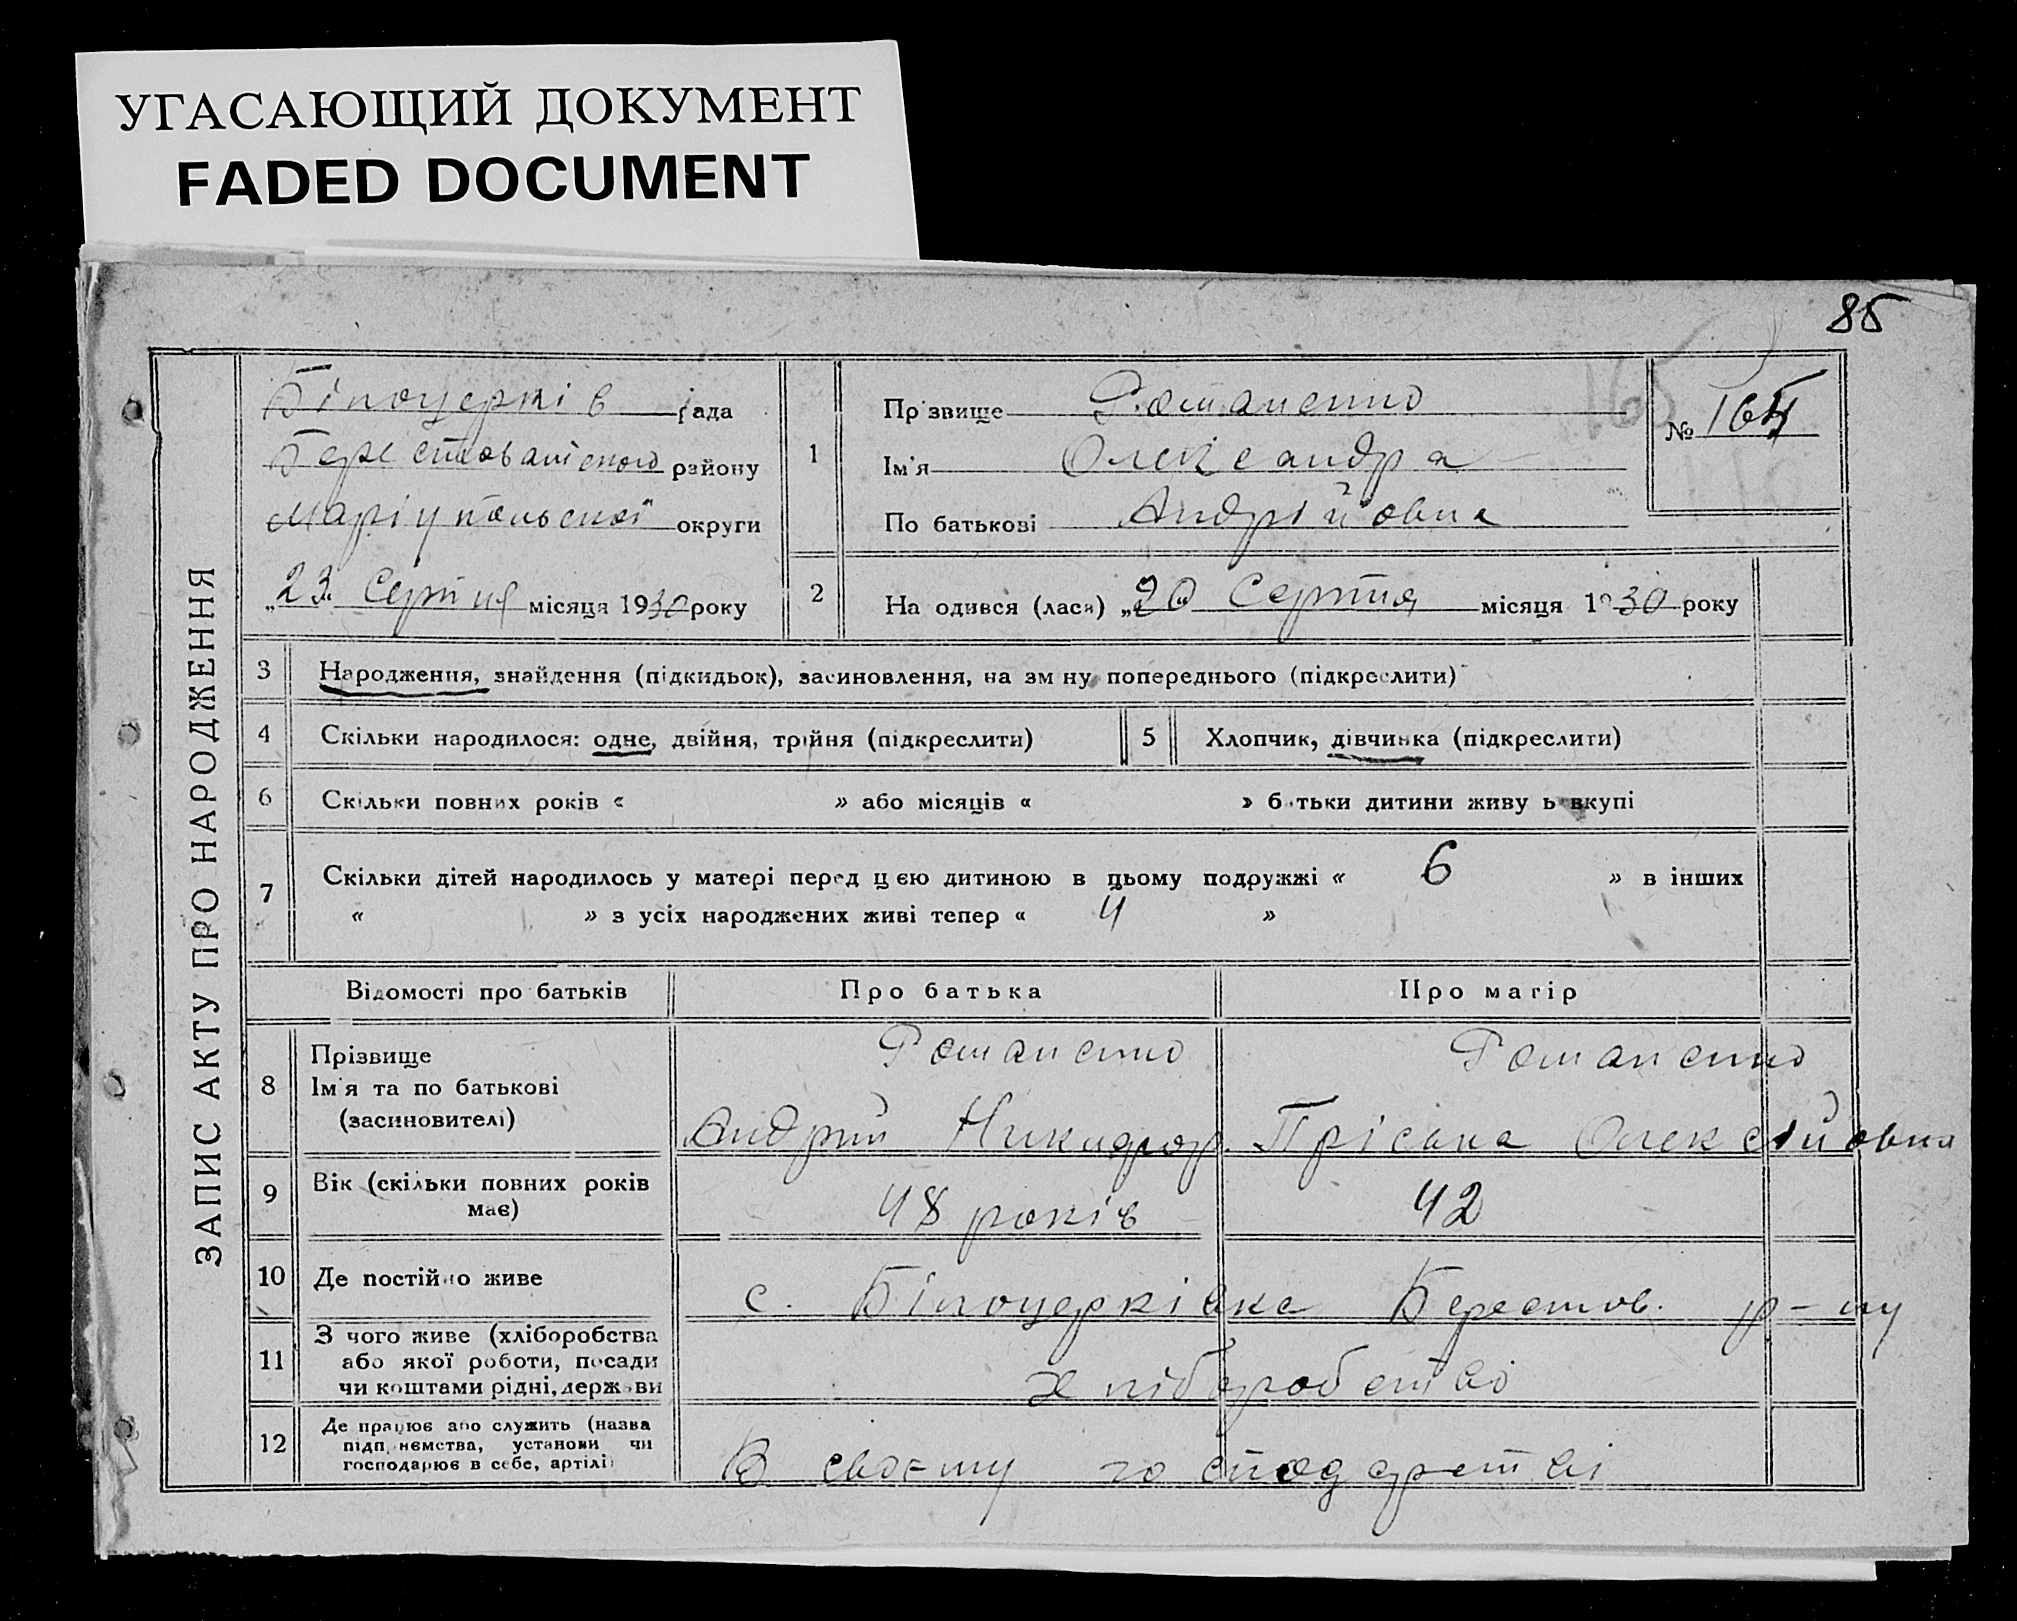 УГАСАЮЩИЙ ДОКУМЕНТ
FADED DOCUMENT
85
ЗАПИС АКТУ ПРО НАРОДЖЕННЯ
Білоцерків рада
Берестованського району
Маріупольської округи
„23 Серпня місяця 1930 року
1
Прізвище Романенко
Ім'я Олександра
По батькові Андрійовна
№ 164
165
2
На одився (лася) „20 Серпня місяця 1930 року
3 Народження, знайдення (підкидьок), засиновлення, на зм ну попереднього (підкреслити)
4 Скільки народилося: одне, двійня, трійня (підкреслити)
5 Хлопчик, дівчинка (підкреслити)
6 Скільки повних років « » або місяців « » батьки дитини живу ь вкупі
7 Скільки дітей народилось у матері перед цією дитиною в цьому подружжі « 6 » в інших
« » з усіх народжених живі тепер « 4 »
Відомості про батьків Про батька Про матір
8 Прізвище Романенко Романенко
Ім'я та по батькові
(засиновителі) Андрий Никифор. Пріська Олексійовна
9 Вік (скільки повних років
має) 48 років 42
10 Де постійно живе с. Білоцерківка Берестов. р-ну
11 З чого живе (хліборобства
або якої роботи, посади
чи коштами рідні, держави хліборобстві
12 Де працює або служить (назва
підп немства, установи чи
господарює в себе, артілі)
В своєму господарстві